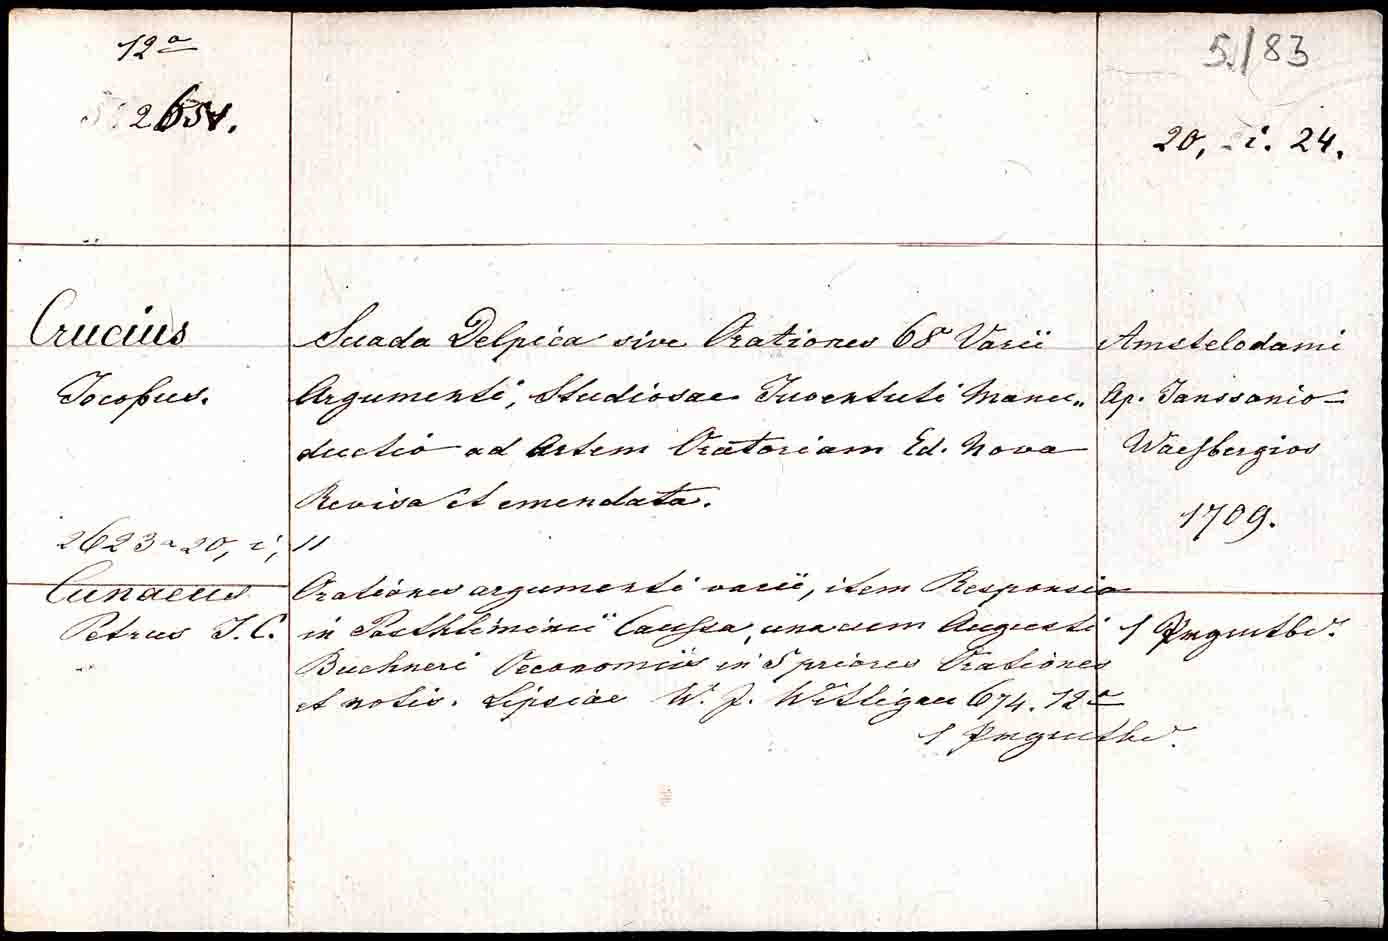 12a
5./83
2651.
20, i. 24.
Crucius
Jocobus.
Suada Delpica sive Orationes 68 Varii
Argumenti, Studiosae Iuventuti Manu„
ductio ad Artem Oratoriam Ed. Nova
Revisa et emendata.
Amstelodami
Ap. Janssonio-
Waesbergios
1709.
2623a 20, i, 11
Cunaeus
Petrus J. C.
Orationes argumenti varii, item Responsio
in Postkliminii Caussa, una cum Augusti
Buchneri Oeconomiis in 5 priores Orationes
et notis. Lipsiae W. J. Wittigau 674. 12a
1 Prngmtbd.
1 Prngmtbd.